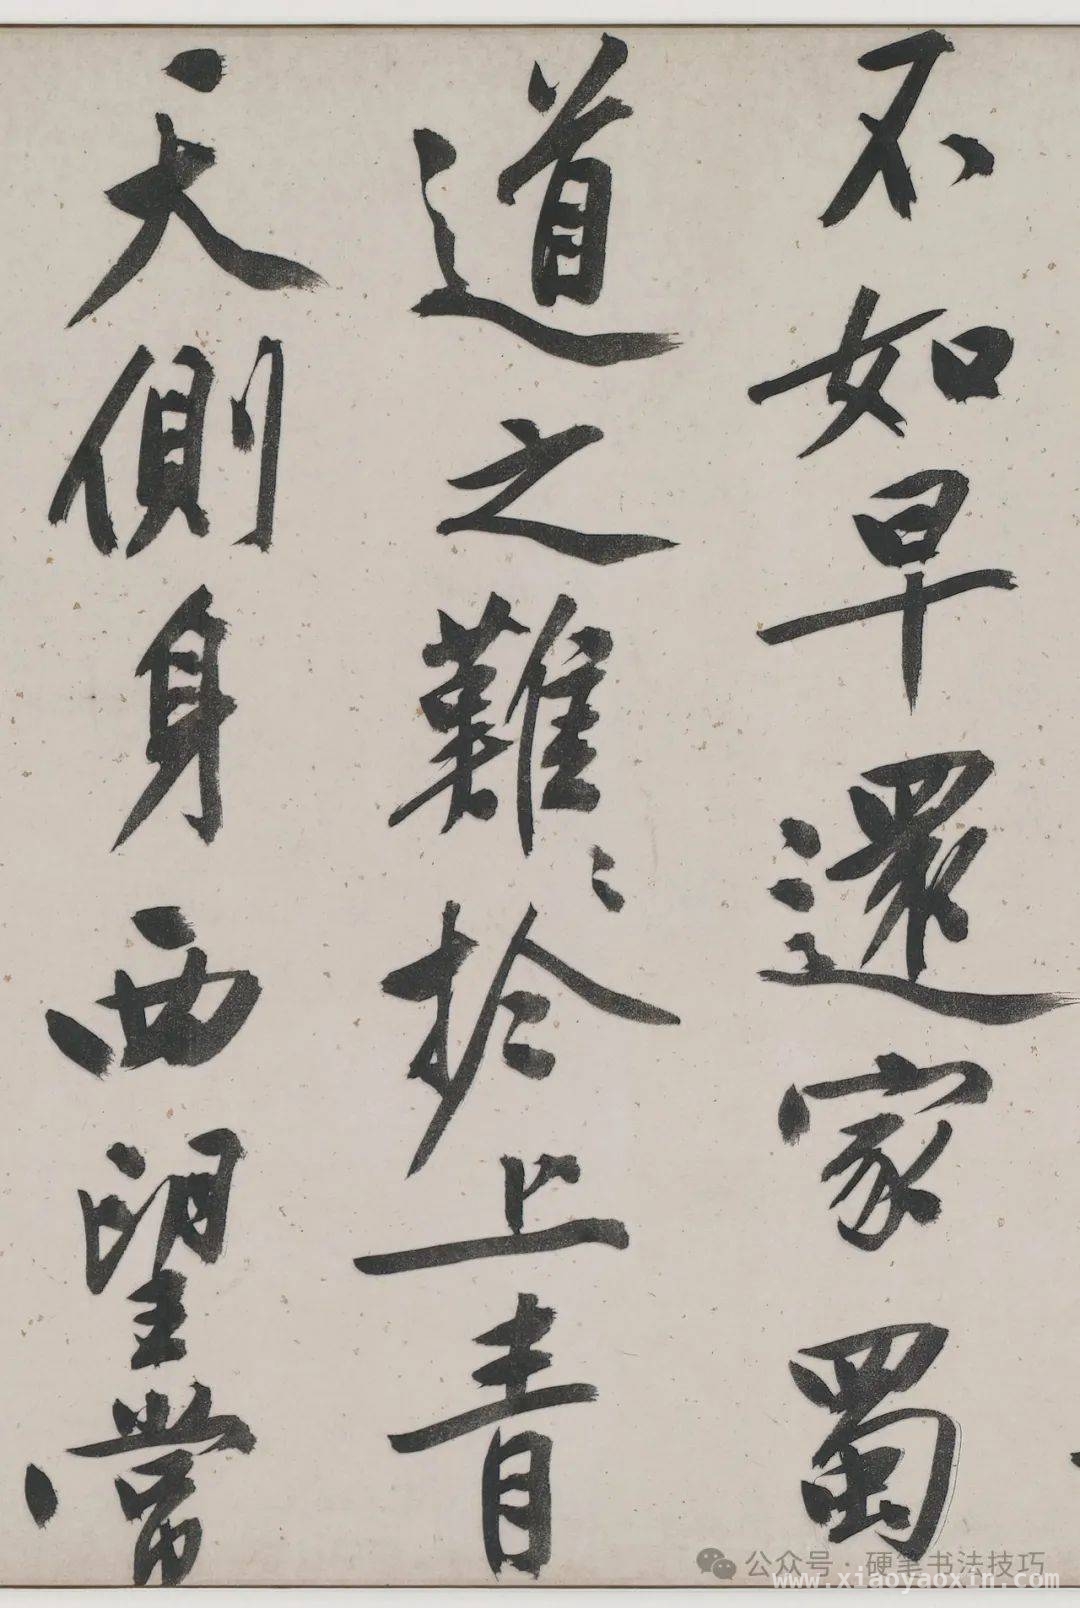 不如早還家蜀
道之難〻於上青
天側身西望常
公众号·硬笔书法技巧
www.xiaoyaoxin.com